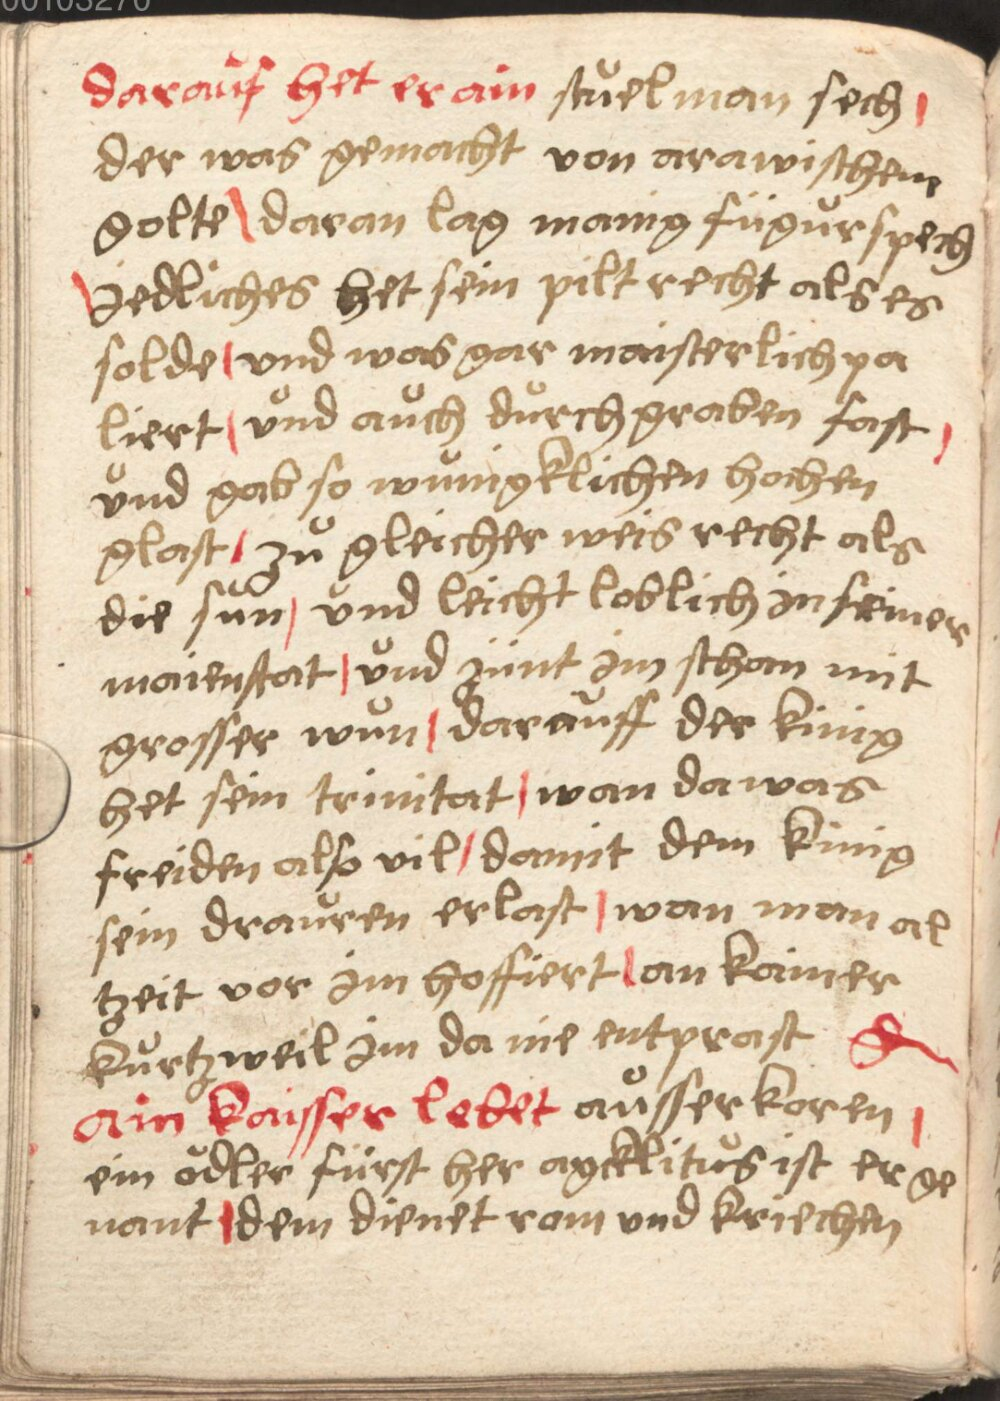 00103270
darauf het er ain stuel man sech /
der was gemacht von arawischem
golte / daran lag manig figur spech
/ iedliches het sein pilt recht als es
solde / vnd was gar maisterlich pa
liert / vnd auch durch graben fast /
vnd gab so wunigklichen hochen
glast / zu gleicher weis recht als
die sun / vnd leicht loblich in seiner
maienstat / vnd zünt im schon mit
grosser wun / darauff der kinig
het sein trinitat / wan da was
freiden also vil / damit dem kinig
sein drauren erlast / wan man al
tzeit vor im hoffiert / an kainer
kurtzweil im da nie entprast
ain kaisser lebet ausserkoren /
ein ödler fürst her agckklitus ist er ge
nant / dem dienet rom vnd kriechen